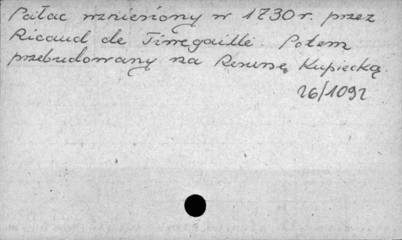 Pałac wzniesiony w 1730 r. przez
Ricaud de Tirregaille. Potem
przebudowany na Resursę Kupiecką.
26/1092